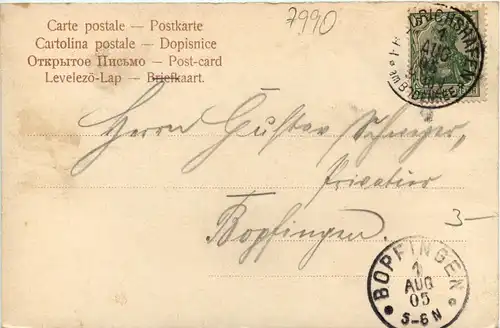 7990
Carte postale — Postkarte
Cartolina postale — Dopisnice
Открытое Письмо — Post-card
Levelező-Lap — Briefkaart.
FRIEDRICHSHAFEN
1
AUG
Herrn Gustav
Privatier
Bopfingen.
3-
BOPFINGEN
1
AUG
05
5-6 N